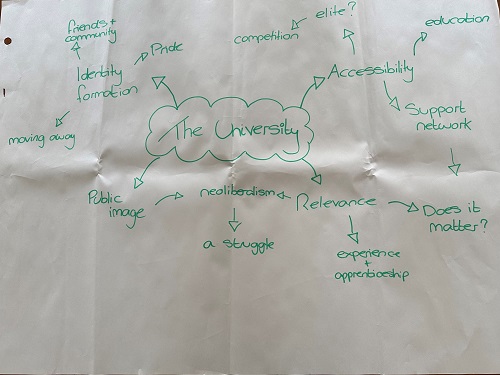 friends +
community
Pride
Identity
formation
moving away
elite?
competition
education
Accessibility
Support
network
The University
Public
image
neoliberalism
a struggle
Relevance
experience
+
apprenticeship
Does it
matter?